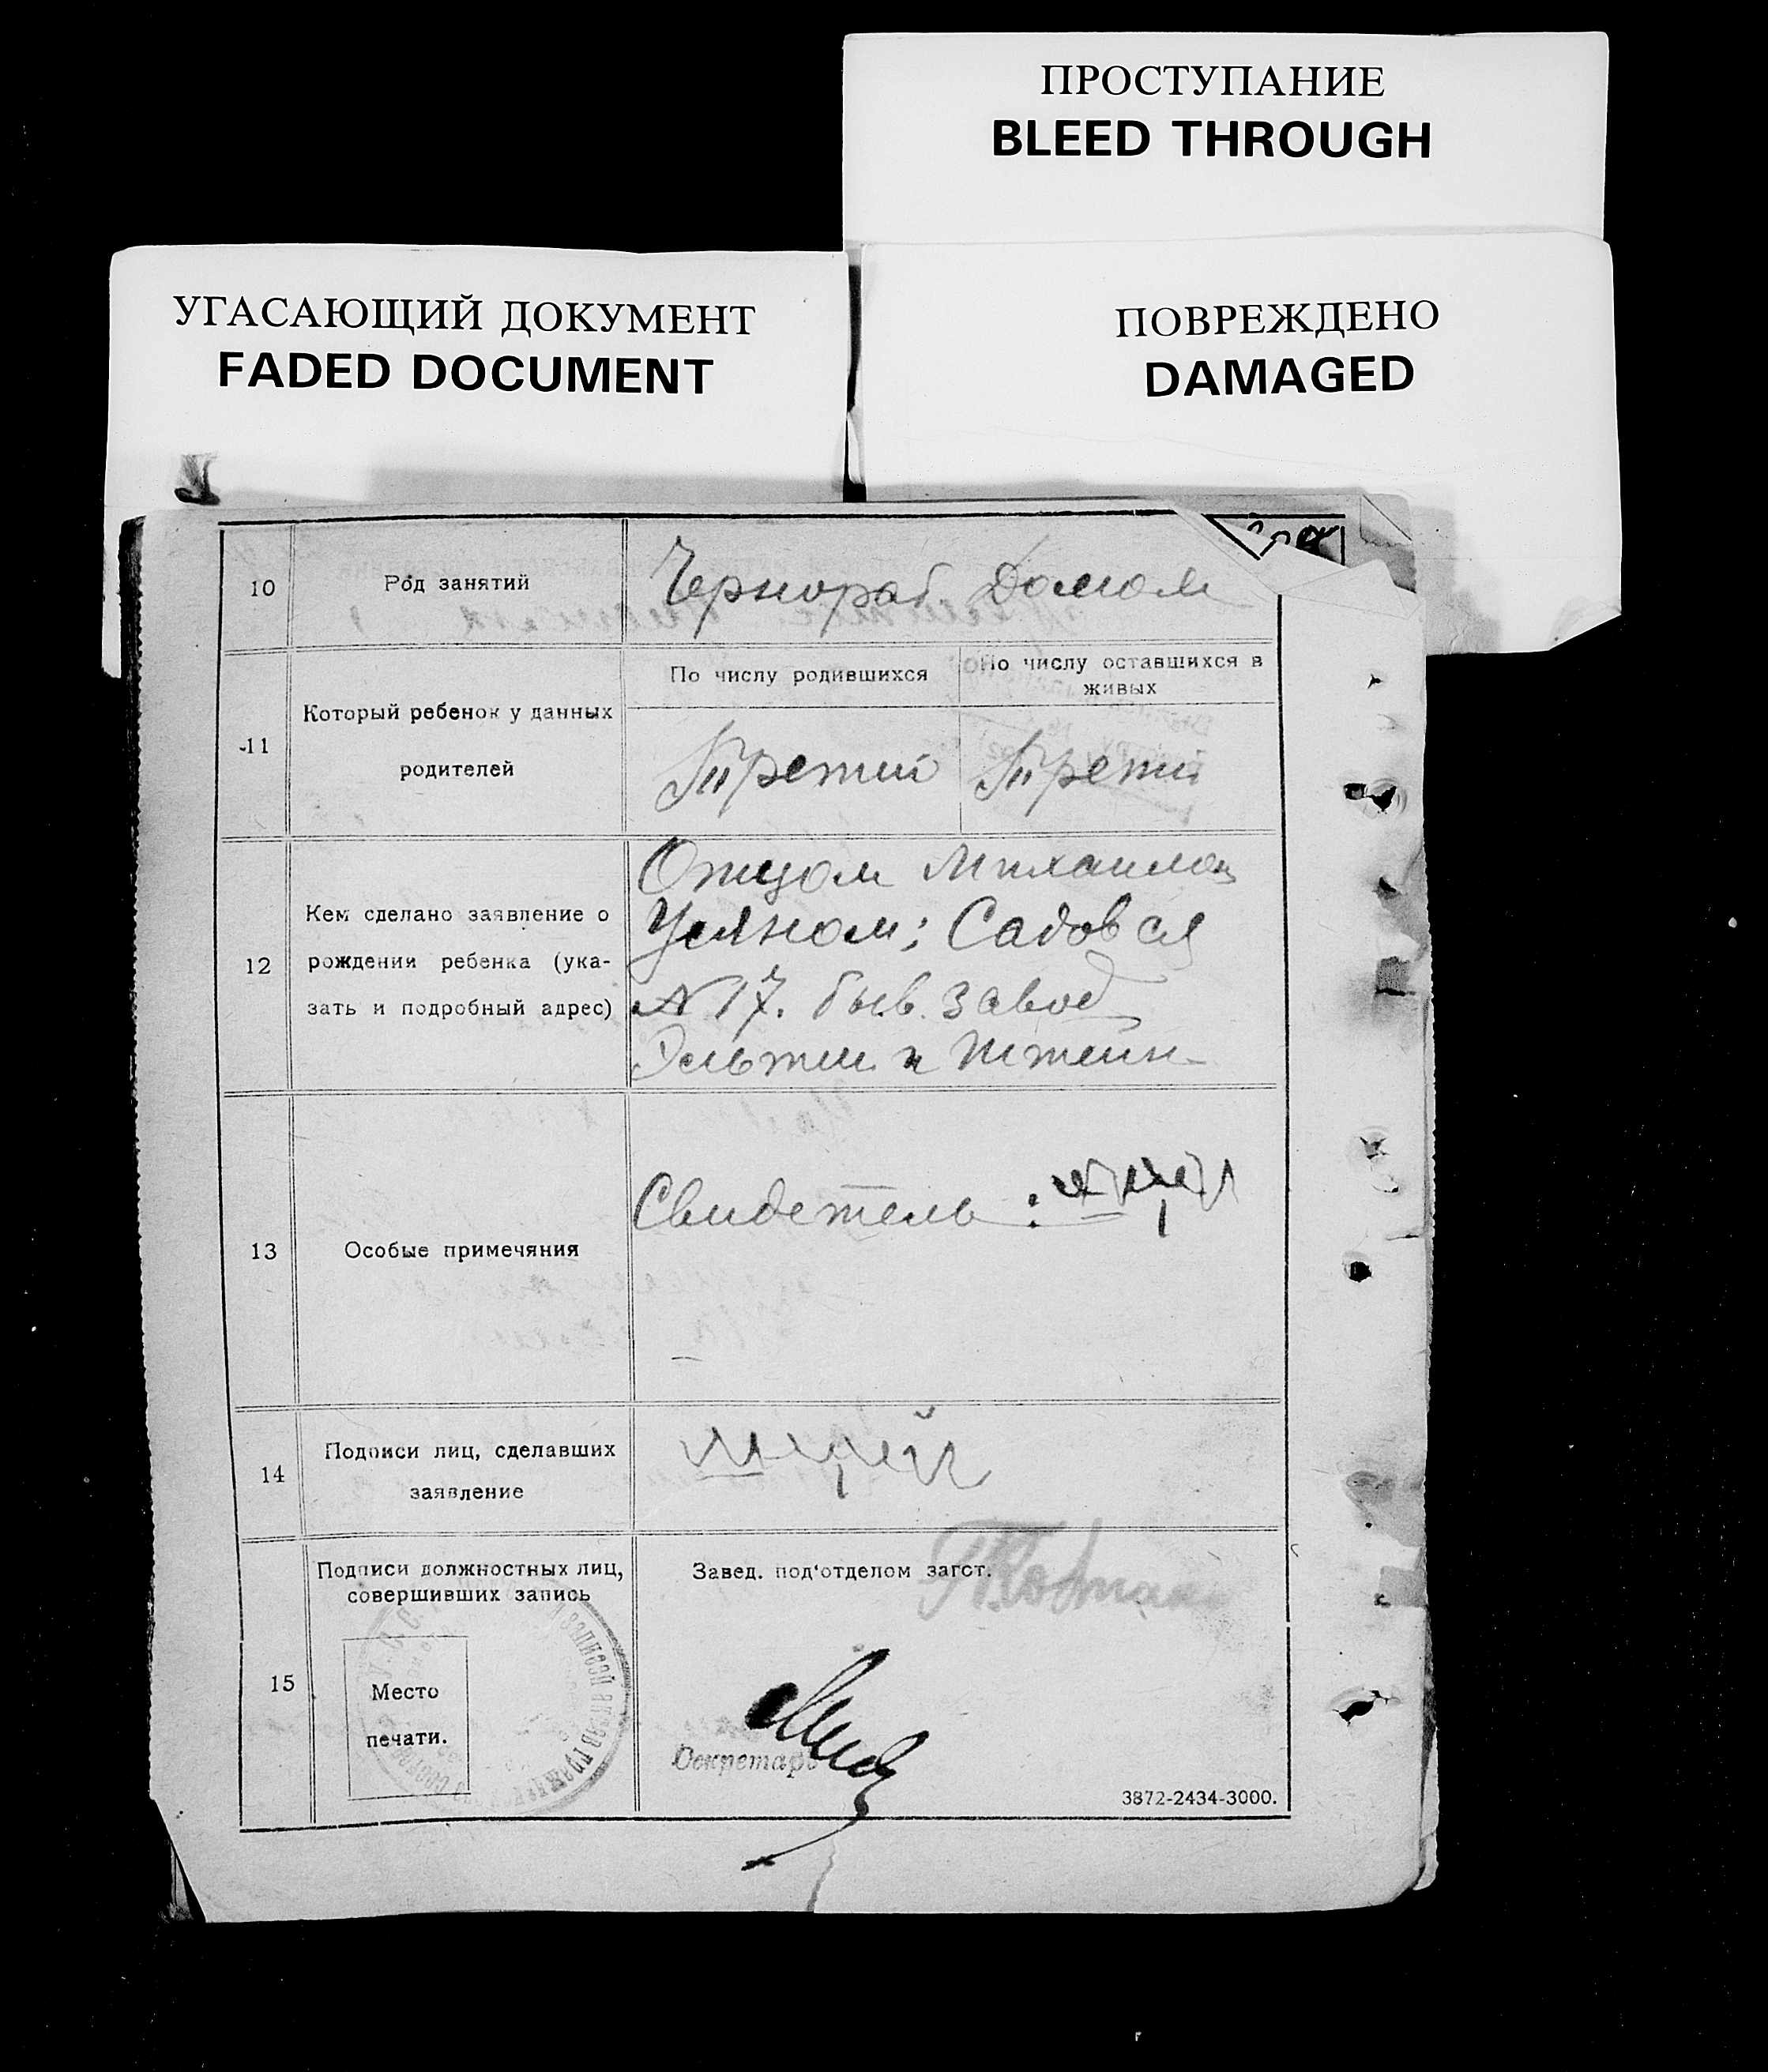 ПРОСТУПАНИЕ
BLEED THROUGH
УГАСАЮЩИЙ ДОКУМЕНТ
FADED DOCUMENT
ПОВРЕЖДЕНО
DAMAGED
10
Род занятий
Чернораб Домом
11
Который ребенок у данных
родителей
По числу родившихся
По числу оставшихся в
живых
Третий
Трети
12
Кем сделано заявление о
рождении ребенка (ука-
зать и подробный адрес)
Отцом Михаилом
Садовая
N 17. быв. завод
и Штейн
13
Особые примечяния
Свидетель :
14
Подписи лиц, сделавших
заявление
15
Подписи должностных лиц,
совершивших запись
Место
печати.
Завед. под'отделом загст.
Секретарь
3872-2434-3000.